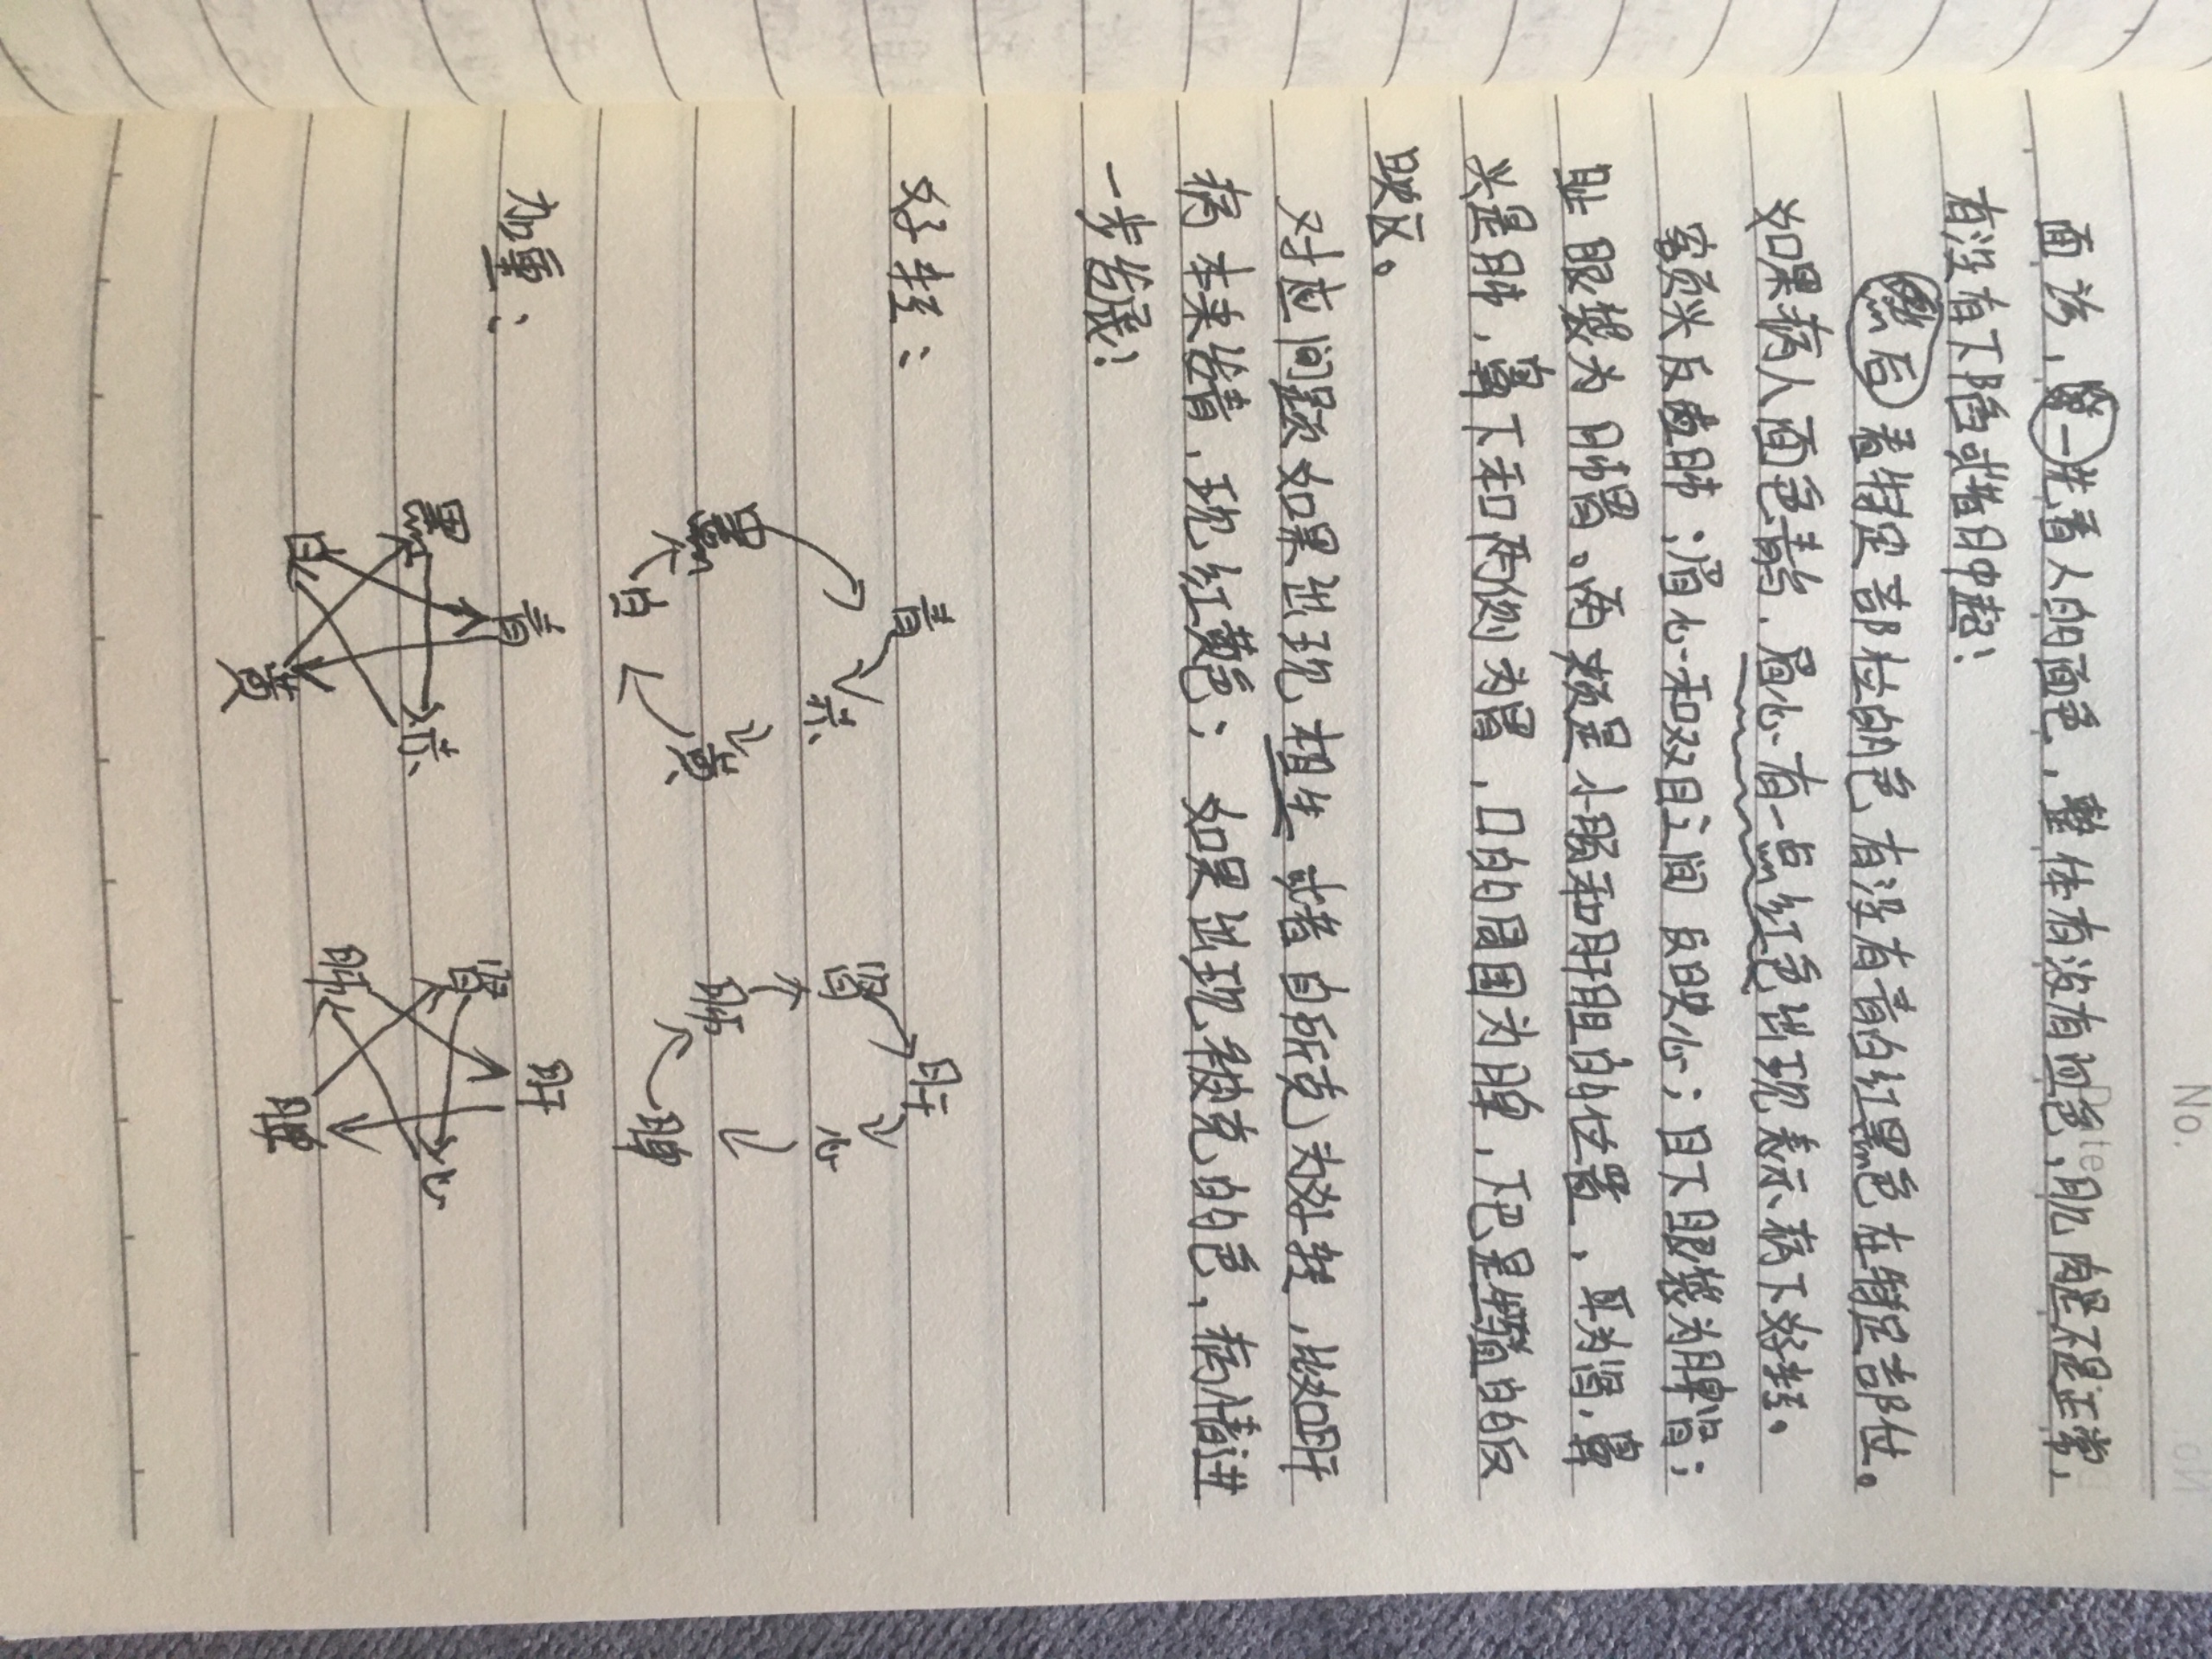 No.
面诊，第一先看人的面色，整体有没有泣色，肌肉是不是正常，
有没有下陷或者月中起；
然后看特定部位的色有没有青白红黑色在特定部位。
如果病人面色青，眉心有一点红色出现表示病下好转。
额头反应肺；眉心和双目之间反映心；目下眼袋为脾胃；
眼袋为脾胃、两颊是小肠和肝胆的位置，耳为肾，鼻
头是肺，鼻下和两侧为胃，口的周围为脾，下巴是肾的反
映区。
对应问题如果出现相生或者自所克为好转，比如肝
病本来发青，现红黄色；如果出现被克的色，病情进
一步发展；
好转：
青 赤 黄 白 黑
肝 心 脾 肺 肾
加重：
青 赤 黄 白 黑
肝 心 脾 肺 肾